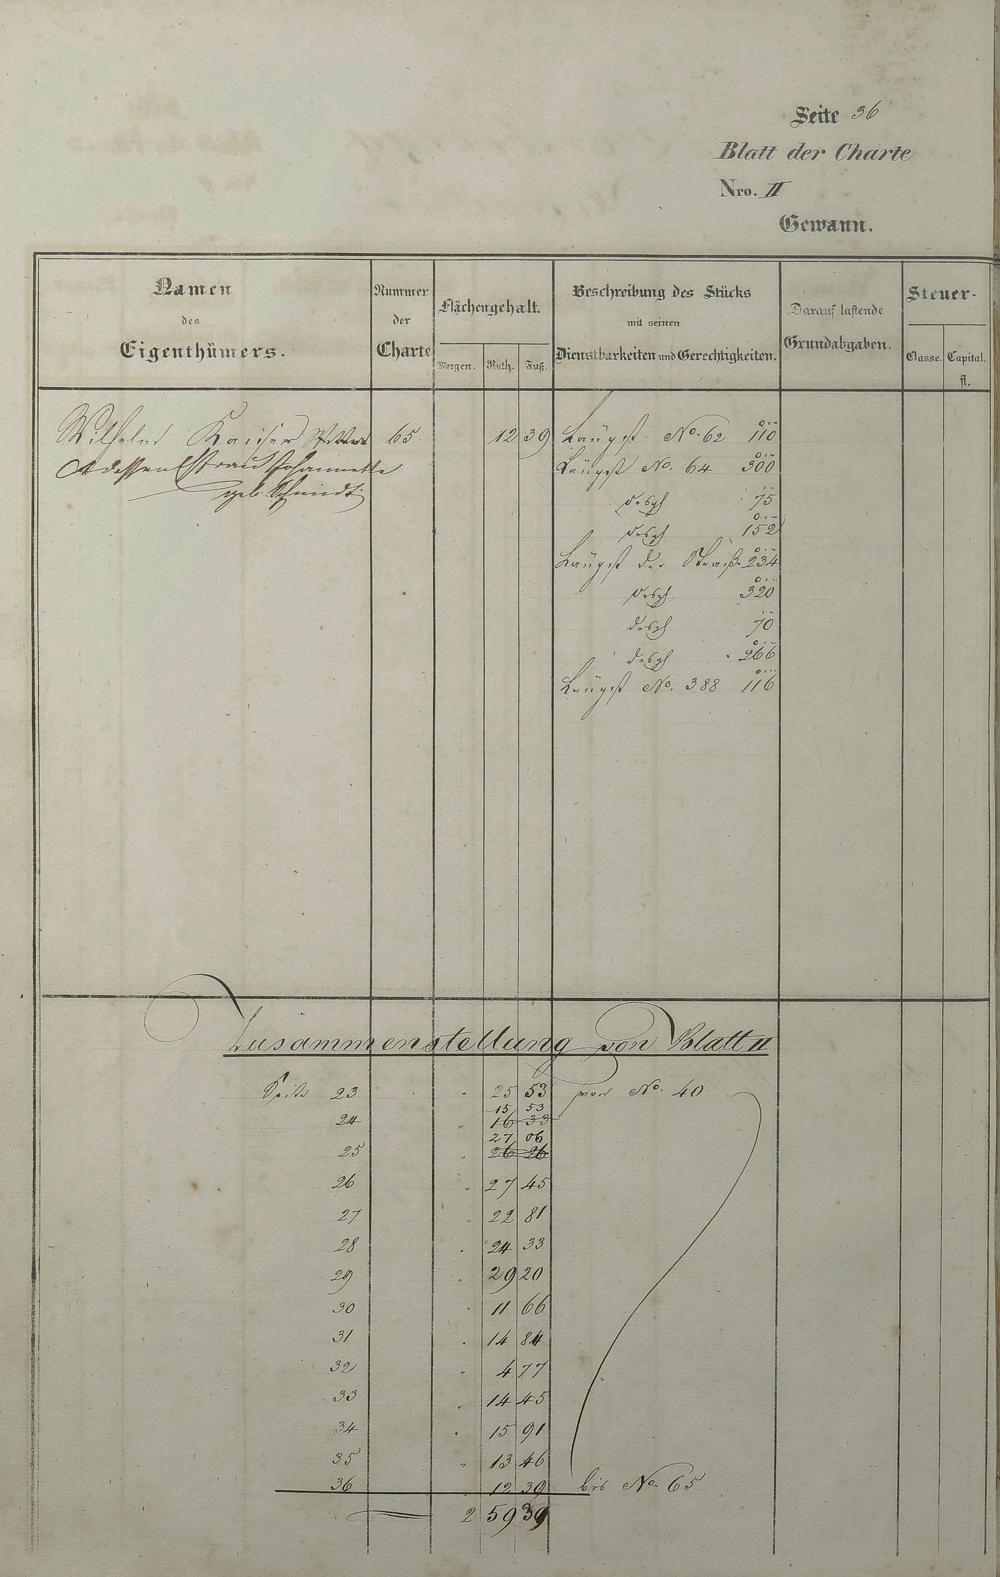 Seite 36
Blatt der Charte
Nro. II
Gewann.
Namen
des
Eigenthümers.
Nummer
der
Charte
Flächengehalt.
Morgen. Ruth. Fuß.
Beschreibung des Stücks
mit seinen
Dienstbarkeiten und Gerechtigkeiten.
Darauf lastende
Grundabgaben.
Steuer-
Classe. Capital.
fl.
Wilhelm Kaiser 65. 12 39 Längst No. 62 110
dessen Ehefrau Johannette Längst No. 64 300
geb. Schmidt
desgl 75
desgl 152
Längst der Straße 234
desgl. 320
desgl 70
desgl 266
Längst No. 388 116
Zusammenstellung von Blatt II
Seite 23 " 25 53 von No. 40
15 53
24 " 16 33
27 06
25 " 26 26
26 " 27 45
27 " 22 81
28 " 24 33
29 " 29 20
30 " 11 66
31 " 14 84
32 " 4 77
33 " 14 45
34 " 15 91
35 " 13 46
36 12 39 bis No. 65.
2 59 39